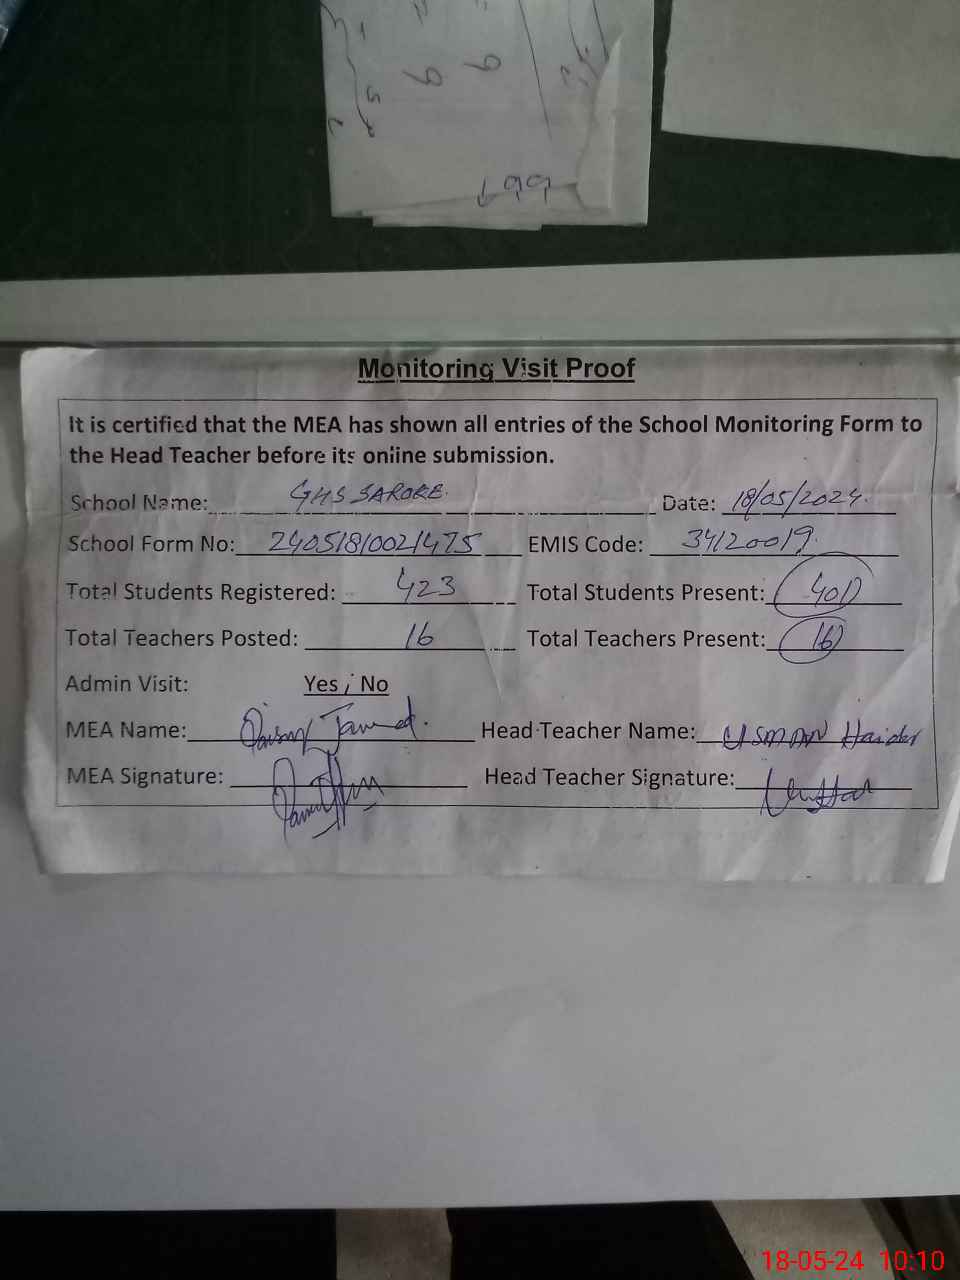 Monitoring Visit Proof
It is certified that the MEA has shown all entries of the School Monitoring Form to
the Head Teacher before its online submission.
School Name: GHS SAROKE. Date: 18/05/2024.
School Form No: 24051810021475 EMIS Code: 34120019.
Total Students Registered: 423 Total Students Present: 401
Total Teachers Posted: 16 Total Teachers Present: 16
Admin Visit: Yes / No
MEA Name: Head Teacher Name: USMAN Haider
MEA Signature: Head Teacher Signature:
18-05-24 10:10